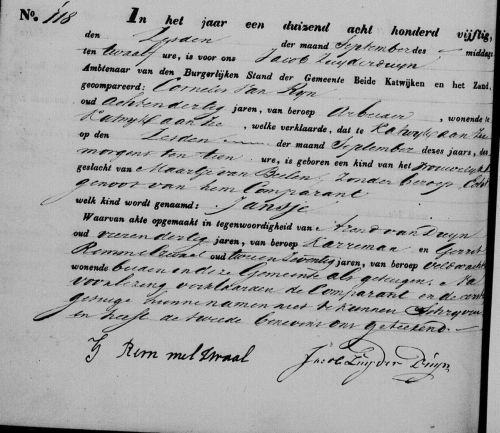 No. 118 In het jaar een duizend acht honderd vijftig,
den Zesden der maand September des middags
ten twaalf ure, is voor ons Jacob Zuyderduyn
Ambtenaar van den Burgerlijken Stand der Gemeente Beide Katwijken en het Zand,
gecompareerd: Cornelis van Rijn
oud achtendertig jaren, van beroep Arbeider, wonende te
Katwijk aan Zee, welke verklaarde, dat te Katwijk aan Zee
op den Zesden der maand September dezes jaars, des
morgens ten tien ure, is geboren een kind van het vrouwelijk
geslacht van Maartje van Beelen, zonder beroep, Echt
genoot van hem Comparant
welk kind wordt genaamd: Jansje
Waarvan akte opgemaakt in tegenwoordigheid van Arend van Duyn
oud vierendertig jaren, van beroep Karreman en Gerrit
Remmelzwaal oud tweeenzeventig jaren, van beroep Veldwachter
wonende beiden in deze Gemeente als getuigen. Na
voorlezing verklaarden de Comparant en de eerste
getuige hunne namen niet te kunnen schrijven
en heeft de tweede benevens ons geteekend.
G Rem mel Zwaal Jacob Zuyder Duyn